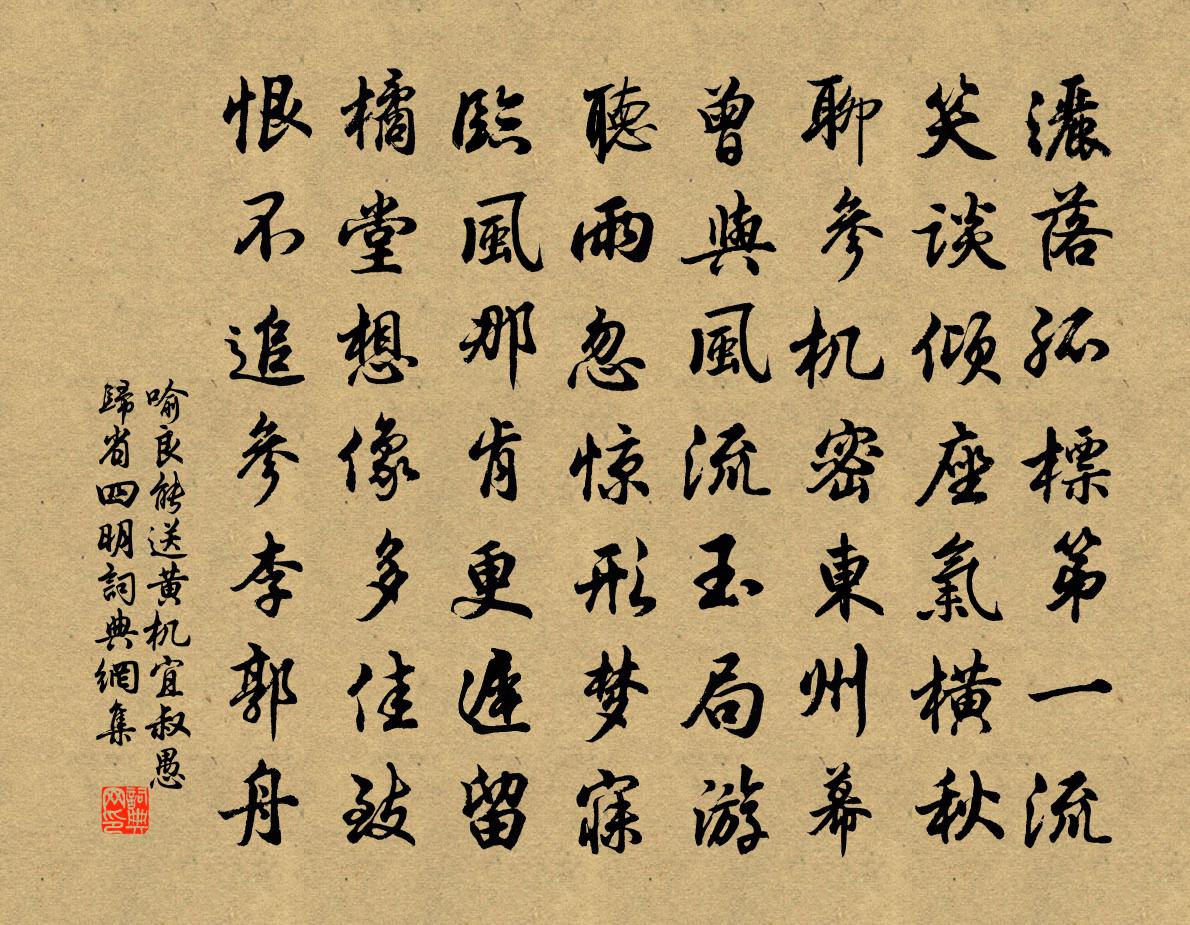 灑落孤標第一流
笑談傾座氣橫秋
聊參机密東州幕
曾與風流玉局游
聽雨忽惊形梦寐
臨風那肯更遲留
橘堂想像多佳致
恨不追參李郭舟
喻良能送黄机宜叔愚
歸省四明詞典網集
詞典
网印